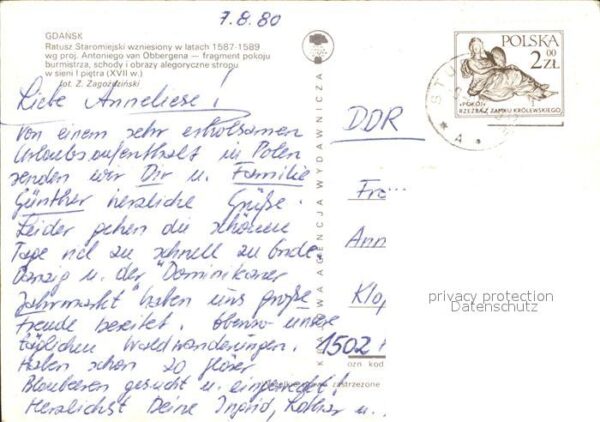 7.8.80
GDAŃSK
Ratusz Staromiejski wzniesiony w latach 1587-1589
wg proj. Antoniego van Obbergena — fragment pokoju
burmistrza, schody i obrazy alegoryczne stropu
w sieni I piętra (XVII w.)
fot. Z. Zagoździński
Liebe Anneliese!
Von einem sehr erholsamen
Urlaubsaufenthalt in Polen
senden wir Dir u. Familie
Günther herzliche Grüße.
Leider gehen die schönen
Tage viel zu schnell zu Ende.
Danzig u. der "Dominikaner
Jahrmarkt" haben uns große
Freude bereitet. Ebenso unsere
täglichen Waldwanderungen.
Haben schon 20 Gläser
Blaubeeren gesucht u. eingeweckt!
Herzlichst Deine Ingrid, Lothar u..
KRAJOWA AGENCJA WYDAWNICZA
POLSKA
2.00 ZŁ
"POKÓJ"
RZEŹBA Z ZAMKU KRÓLEWSKIEGO
DDR
Fra
Ann
Klo
1502
privacy protection
Datenschutz
kod
zastrzeżone